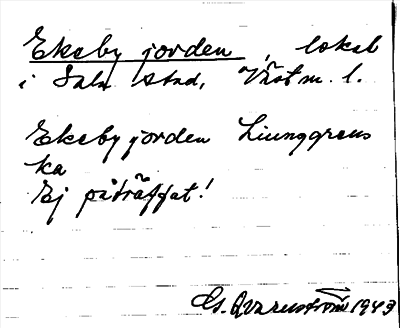 Ekeby jorden, lokal
i Sala stad, Västm. l.
Ekeby jorden Liunggrens
ka
Ej påträffat!
G. Qvarnström 1943